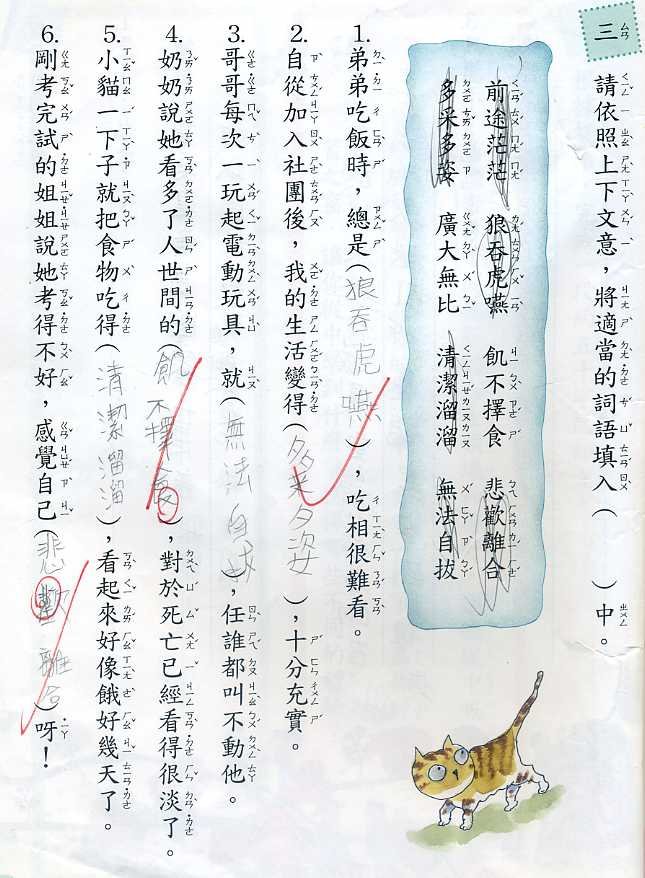 三 ㄙㄢ
請依照上下文意，將適當的詞語填入（　　）中。
前途茫茫　狼吞虎嚥　飢不擇食　悲歡離合
多采多姿　廣大無比　清潔溜溜　無法自拔
1. 弟弟吃飯時，總是（狼吞虎嚥），吃相很難看。
2. 自從加入社團後，我的生活變得（多采多姿），十分充實。
3. 哥哥每次一玩起電動玩具，就（無法自拔），任誰都叫不動他。
4. 奶奶說她看多了人世間的（飢不擇食），對於死亡已經看得很淡了。
5. 小貓一下子就把食物吃得（清潔溜溜），看起來好像餓好幾天了。
6. 剛考完試的姐姐說她考得不好，感覺自己（悲歡離合）呀！